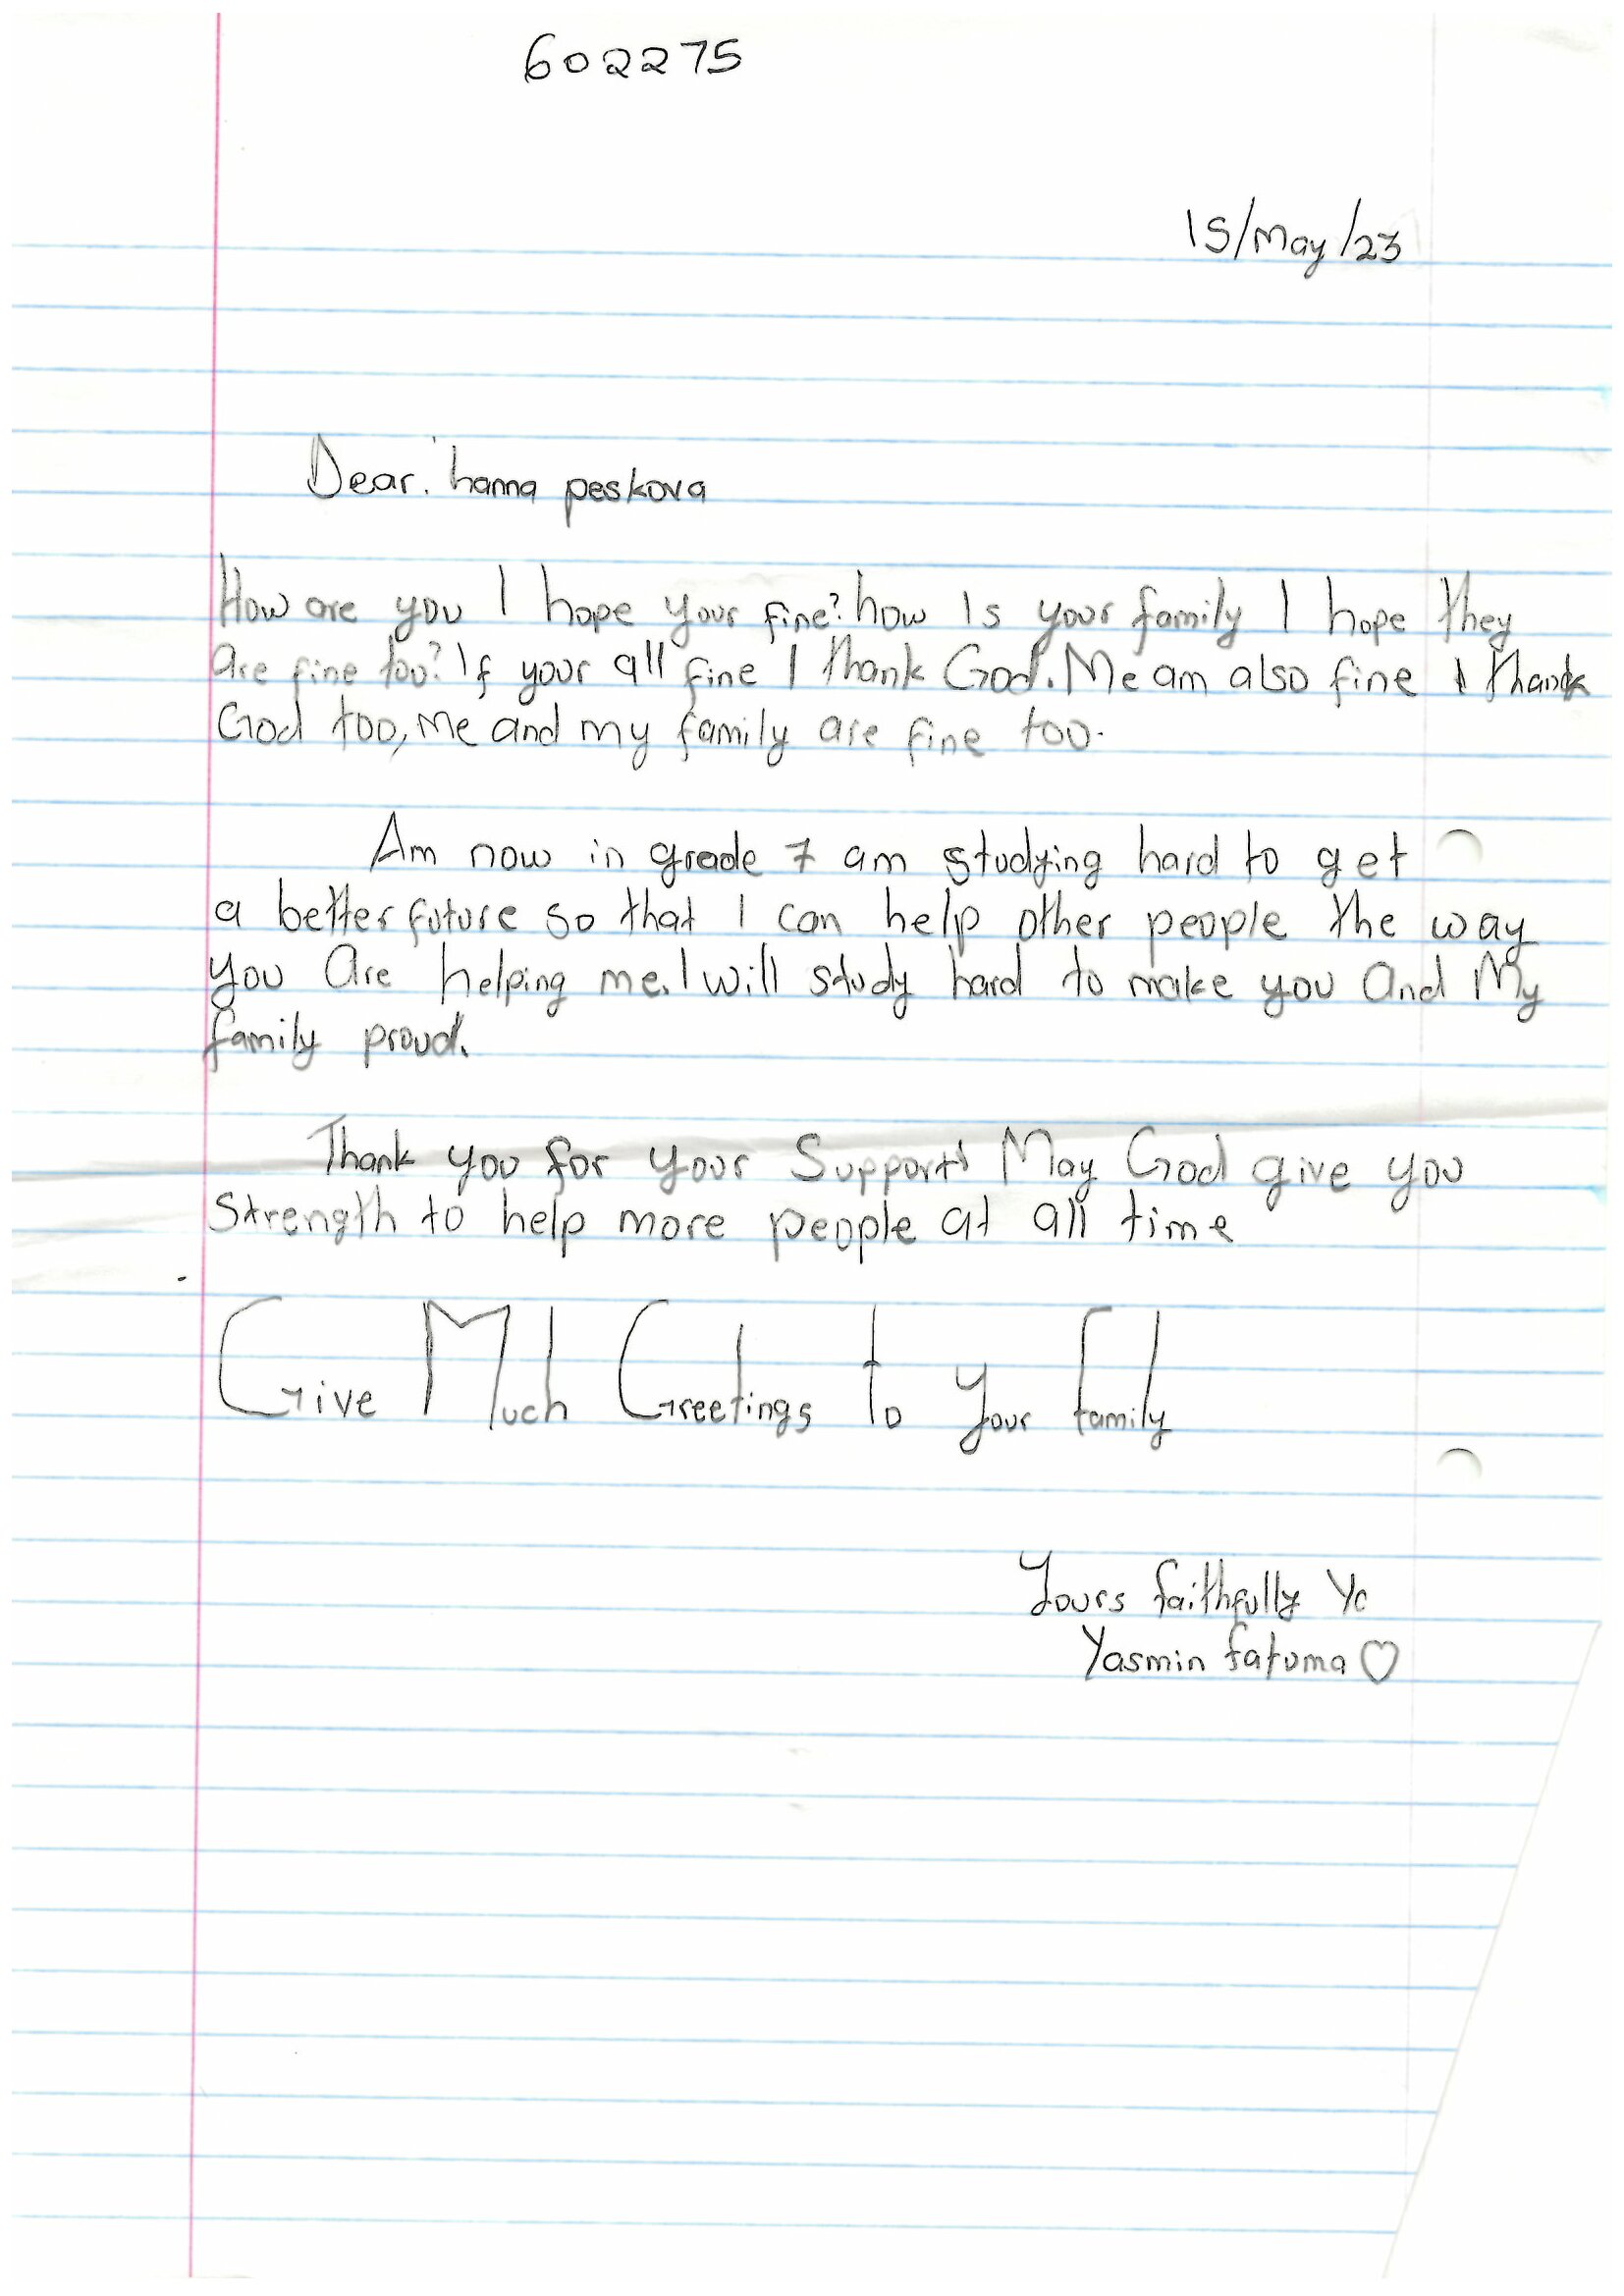 602275
15/May/23
Dear. hanna peskova
How are you I hope your fine? how Is your family I hope they
are fine too? If your all fine I thank God. Me am also fine I thank
God too, Me and my family are fine too.
Am now in grade 7 am studying hard to get
a better future so that I can help other people the way
you Are helping me. I will study hard to make you And My
family proud.
Thank you for your Support May God give you
Strength to help more people at all time
Give Much Greetings to your family
Yours faithfully Yc
Yasmin fatuma ♡